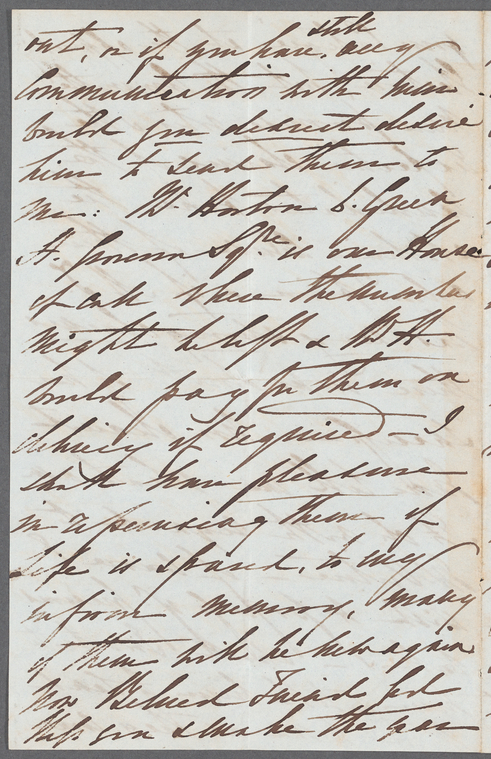 still
out, or if you have, any
Communication with him
could you dearest desire
him to send them to
me: Mr Horton 6. Green
St. Grosvenor Sqre. is our House
of call where the numbers
might be left & Mr H.
could pay for them on
delivery if required – I
shall have pleasure
in reperusing them if
Life is spared, to my
infirm memory, many
of them will be new again
now Beloved Friend God
bless you & make the